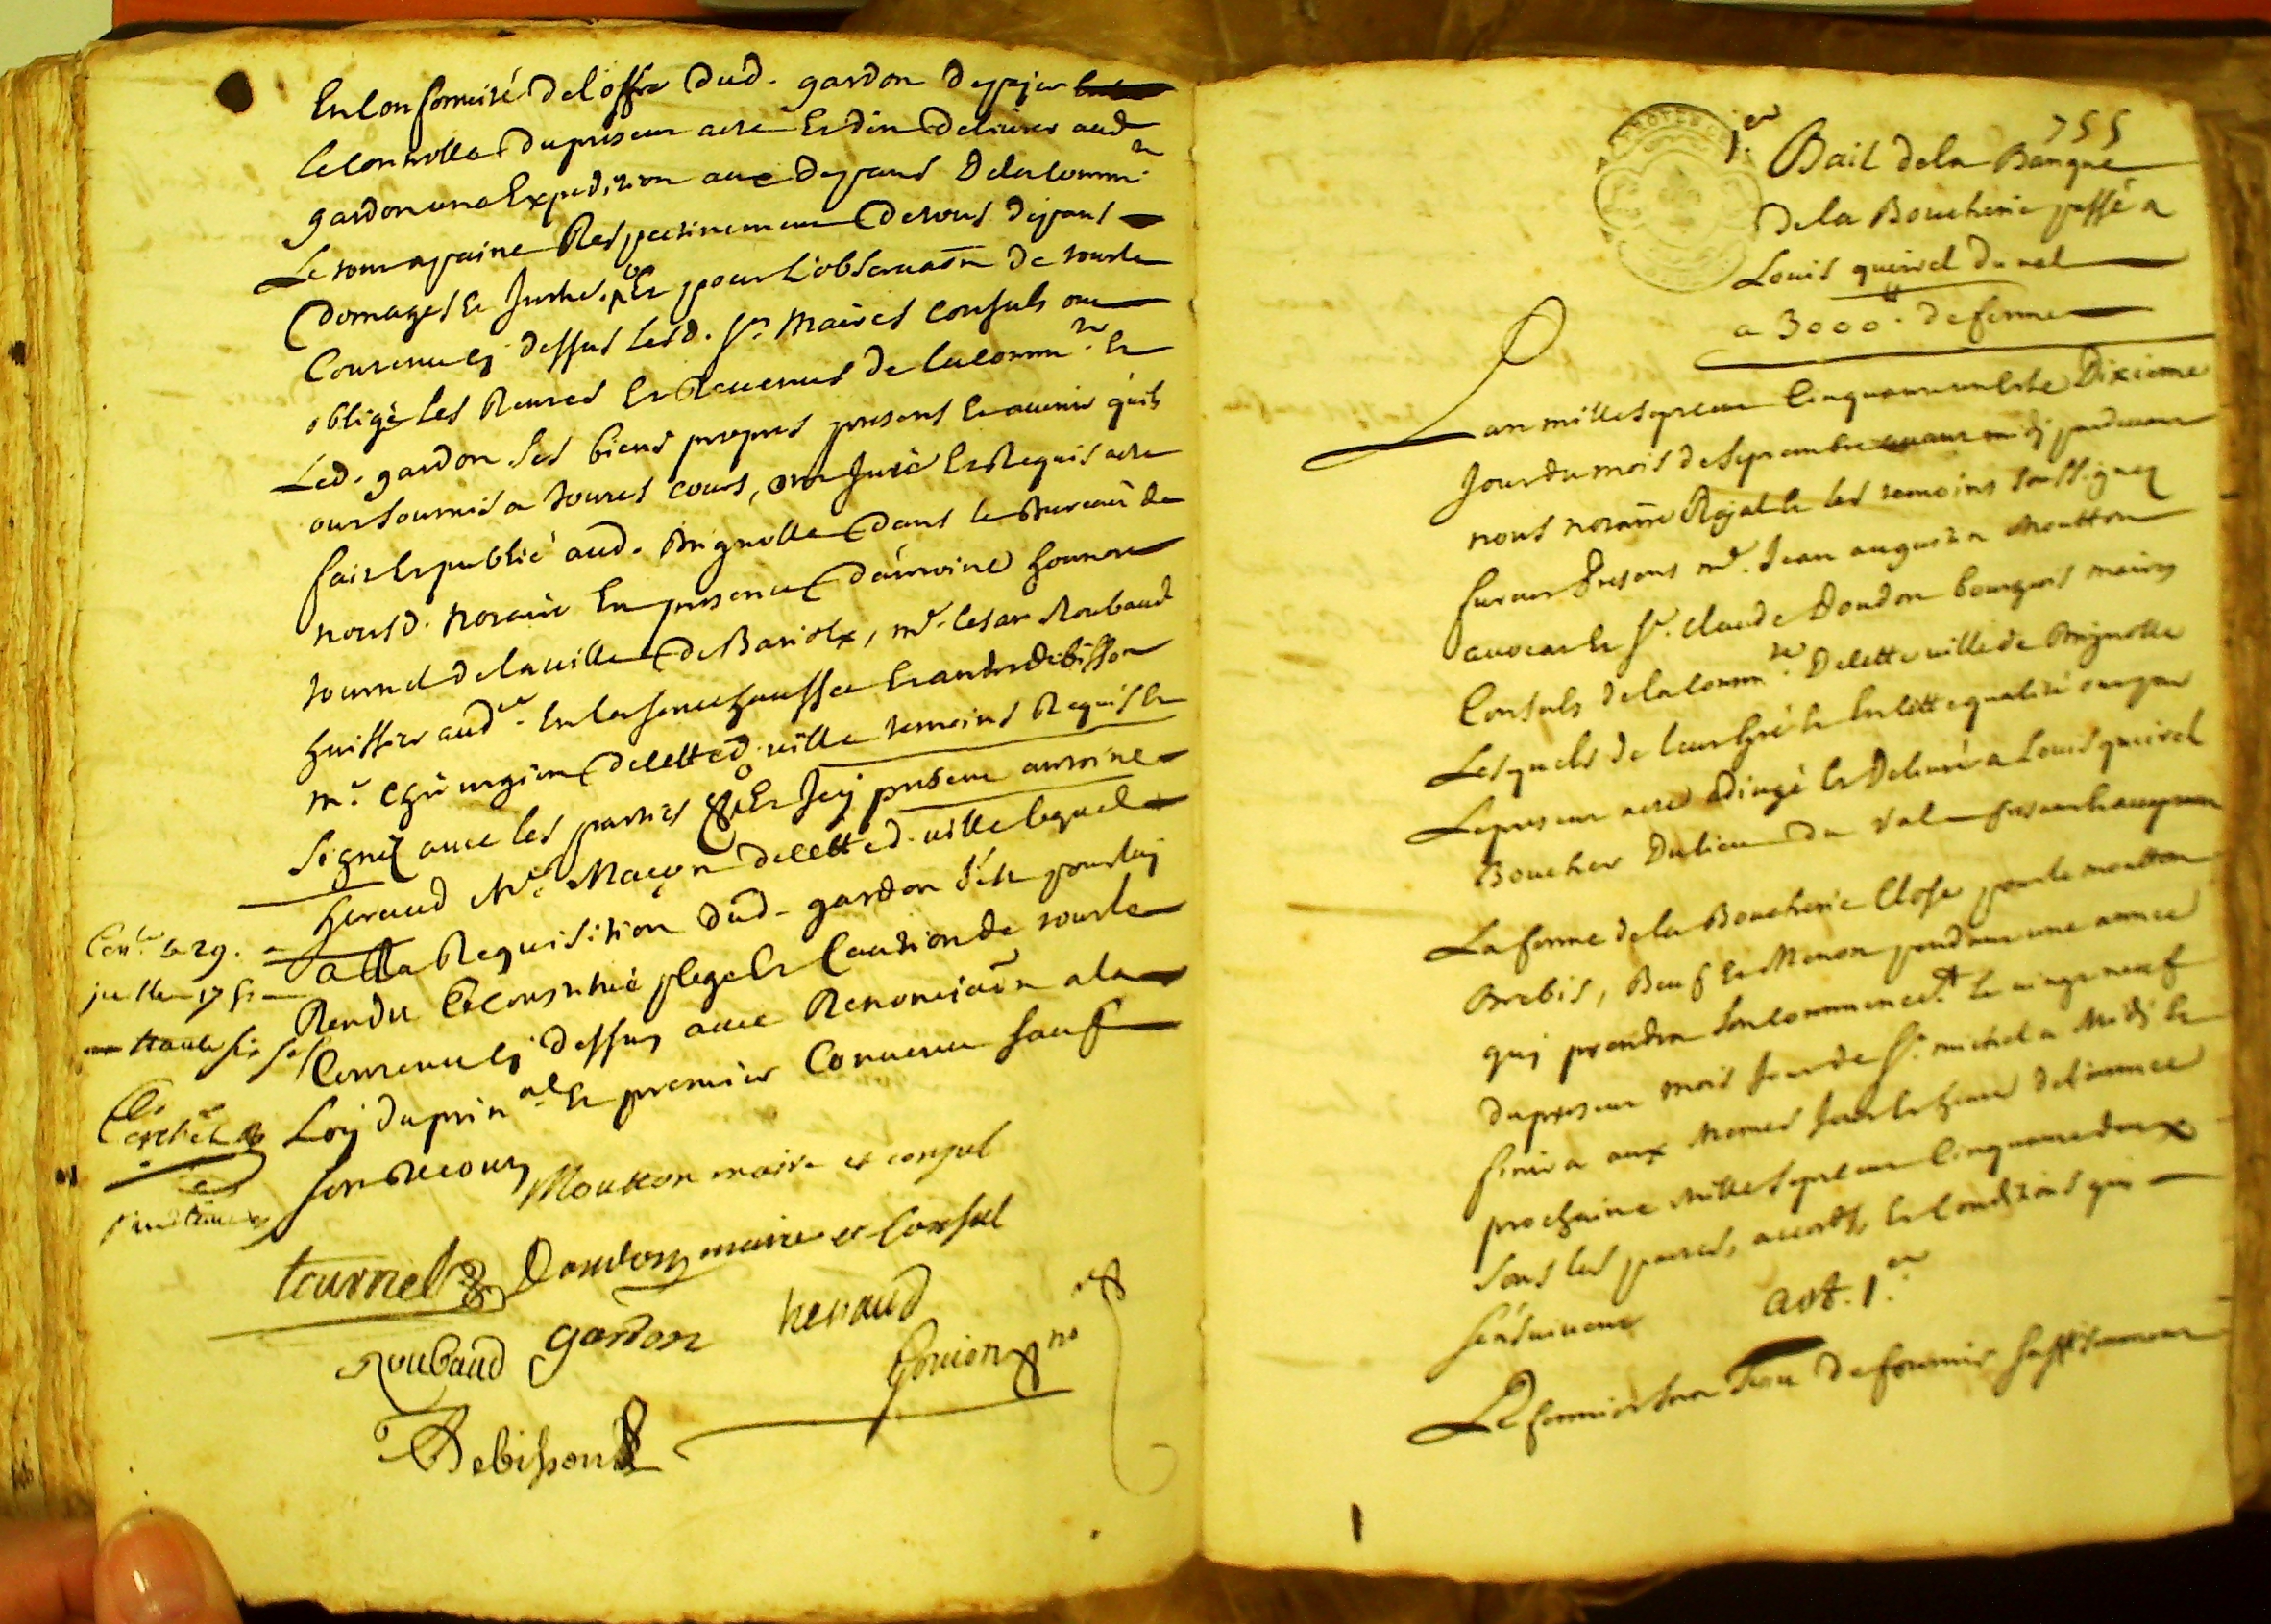 En Conformité de l'offre dud. gardon de payer
le controlle du present acte Et d'en delivrer aud
gardon une Expedition aux depans de la comm.té
Le tout a peine Respectivement de tous depans
Domages Et Juthes. Et pour l'observaon de tout le
Contenu cy dessus lesd. Srs Maires Consuls ont
obligé les Rentes Et Revenus de la comm.té Et
Led. gardon ses biens propres presens Et avenir qu'ils
ont soumis a toutes cours, ont Juré Et Requis acte
fait Et publié aud. Brignolle dans le Bureau de
nousd. notaire En presence d'antoine honnoré
tournel de la ville de Bariolx, me. Cesar Roubaud
huissier aud. En la seneschaussée Et andré debisson
me. chirurgien de cetted. ville temoins Requis Et
Signez avec les parties Et Jcy present antoine
heraud Me. Maçon de cetted. ville lequel
a la Requisition dud. gardon s'est pour luy
Rendu Et constitué plege Et Caution de tout le
Contenu cy dessus avec Renonciaon a la
Loy du prin.al Et premier Convenu sauf
son Recours
Con.lé le 29.
juillet 1751
Moutton maire et consul
tournel Doudon maire et Consul
Roubaud gardon heraud
Gouion no.re
Debisson
755
1.er Bail de la Banque
de la Boucherie passé a
Louis queirel du val
a 3000 ₶. de ferme
L'an mille sept cent Cinquante un Et le Dixieme
Jour du mois de Septembre avant midy pardevant
nous notaire Royal Et les temoins soussignez
furent Presens me. Jean augustin Moutton
avocat Et Sr. Claude Doudon bourgeois maires
Consuls de la comm.té de cette ville de Brignolle
Lesquels de leur gré Et En cette qualité ont par
Le present acte adiugé Et delivré a Louis queirel
Boucher du lieu du Val
La ferme de la Boucherie Close pour le moutton
Brebis, Beuf Et Menon pendant une année
quj prendra son commencem.t Le vingt neuf
du present mois Jour de St. michel a Midj Et
finira aux Memes Jour Et heure de l'année
prochaine mille sept cent Cinquante deux
sous les pactes, accords, Et Conditions qui
s'ensuivent
art. 1.er
Le fermier sera Tenu de fournir suffisament